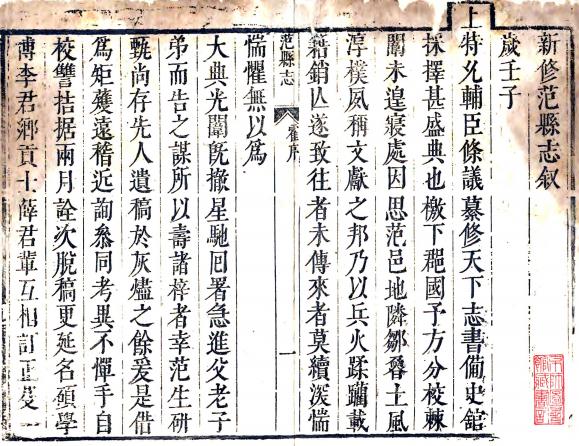 新修范縣志叙
歲壬子
上特允輔臣條議纂修天下志書備史館
採擇甚盛典也檄下郡國予方分校棘
闈未遑寢處因思范邑地隣鄒魯土風
淳樸夙稱文獻之邦乃以兵火蹂躪載
籍銷亡遂致往者未傳來者莫續深惴
惴懼無以為
大典光闈既撤星馳囘署急進父老子
弟而告之謀所以壽諸梓者幸范生研
甎尚存先人遺稿於灰燼之餘爰是借
為矩矱遠稽近詢叅同考異不憚手自
校讐拮据兩月詮次脫稿更延名碩學
博李君鄉貢士薛君軰互相訂正芟
范縣志
序
一